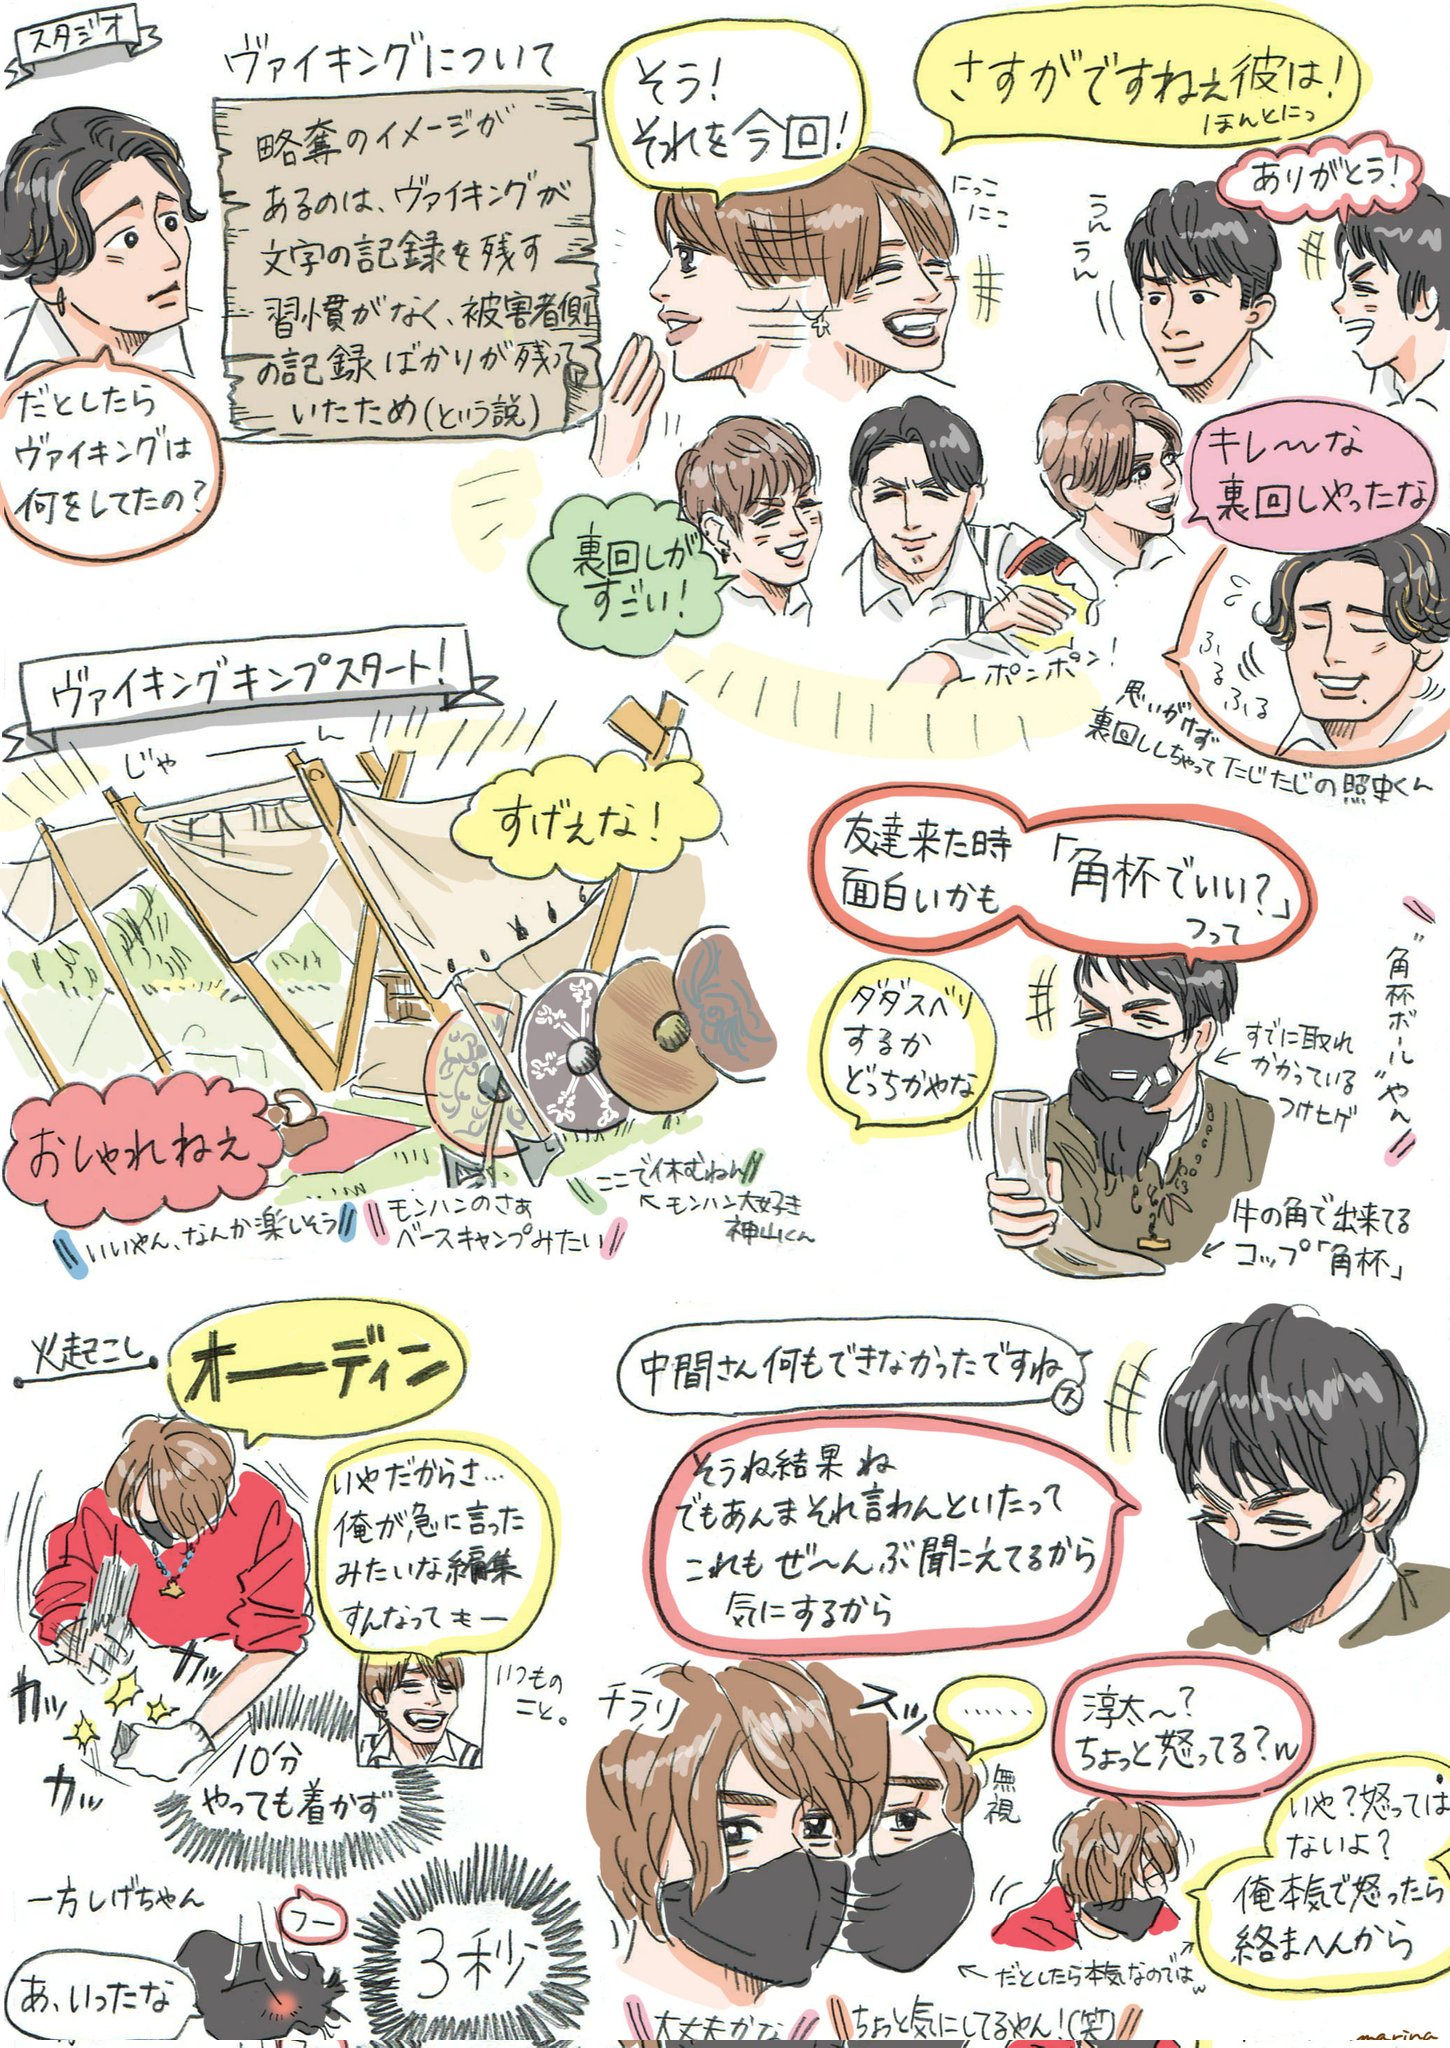 スタジオ
ヴァイキングについて
略奪のイメージが
あるのは、ヴァイキングが
文字の記録を残す
習慣がなく、被害者側
の記録ばかりが残って
いたため(という説)
だとしたら
ヴァイキングは
何をしてたの?
そう!
それを今回!
さすがですねぇ彼は!
ほんとにっ
にっこ
にこ
うんうん
ありがとう!
裏回しが
すごい!
ポンポン!
キレ〜な
裏回しやったな
ふるふる
思いがけず
裏回ししちゃってたじたじの照史くん
ヴァイキングキャンプスタート!
じゃーーん
すげえな!
おしゃれねぇ
いいやん、なんか楽しそう
モンハンのさぁ
ベースキャンプみたい
ここで休むねん
←モンハン大好き
神山くん
友達来た時
面白いかも
「角杯でいい?」
って
ダダスベリ
するか
どっちかやな
"角杯ボール"やん
すでに取れ
かかっている
つけヒゲ
牛の角で出来てる
コップ「角杯」
火起こし
オーディン
いやだからさ…
俺が急に言った
みたいな編集
すんなってもー
いつもの
こと。
カッ
カッ
カッ
10分
やっても着かず
一方しげちゃん
フー
あ、いったな
3秒
中間さん何もできなかったですね
ス
そうね結果ね
でもあんまそれ言わんといたって
これもぜ〜んぶ聞こえてるから
気にするから
チラリ
スッ
……
無視
淳太〜?
ちょっと怒ってる?w
いや?怒っては
ないよ?
俺本気で怒ったら
絡まへんから
←だとしたら本気なのではw
大丈夫かな
ちょっと気にしてるやん!(笑)
marina